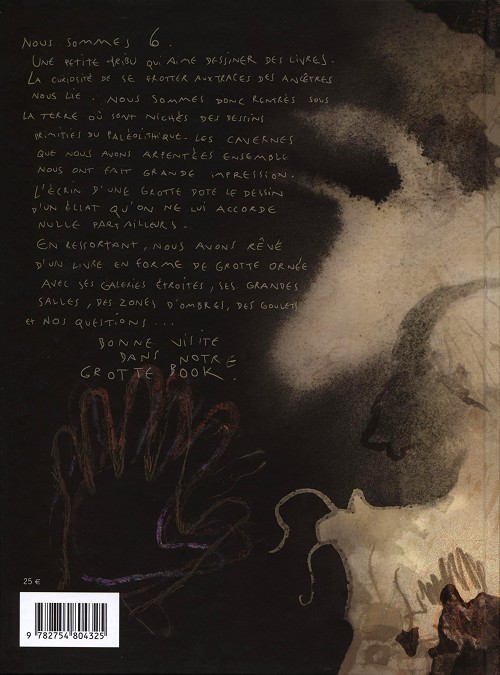 NOUS SOMMES 6.
UNE PETITE TRIBU QUI AIME DESSINER DES LIVRES.
LA CURIOSITÉ DE SE FROTTER AUX TRACES DES ANCÊTRES
NOUS LIE. NOUS SOMMES DONC RENTRÉS SOUS
LA TERRE OÙ SONT NICHÉS DES DESSINS
PRIMITIFS DU PALÉOLITHIQUE. LES CAVERNES
QUE NOUS AVONS ARPENTÉES ENSEMBLE
NOUS ONT FAIT GRANDE IMPRESSION.
L'ÉCRIN D'UNE GROTTE DOTE LE DESSIN
D'UN ÉCLAT QU'ON NE LUI ACCORDE
NULLE PART AILLEURS.
EN RESSORTANT, NOUS AVONS RÊVÉ
D'UN LIVRE EN FORME DE GROTTE ORNÉE
AVEC SES GALERIES ÉTROITES, SES GRANDES
SALLES, DES ZONES D'OMBRES, DES GOULETS
ET NOS QUESTIONS...
BONNE VISITE
DANS NOTRE
GROTTE BOOK.
25 €
9 782754 804325